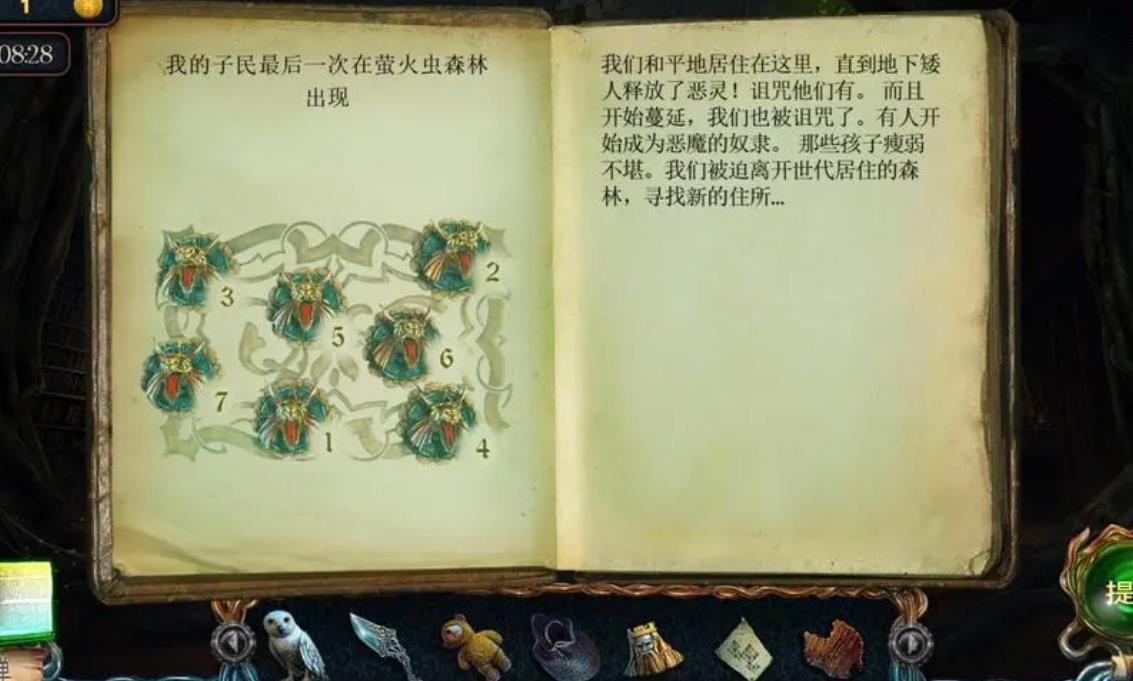 1
08:28
我的子民最后一次在萤火虫森林
出现
3
2
5
6
7
1
4
我们和平地居住在这里，直到地下矮
人释放了恶灵！诅咒他们有。 而且
开始蔓延，我们也被诅咒了。有人开
始成为恶魔的奴隶。 那些孩子瘦弱
不堪。我们被迫离开世代居住的森
林，寻找新的住所...
提